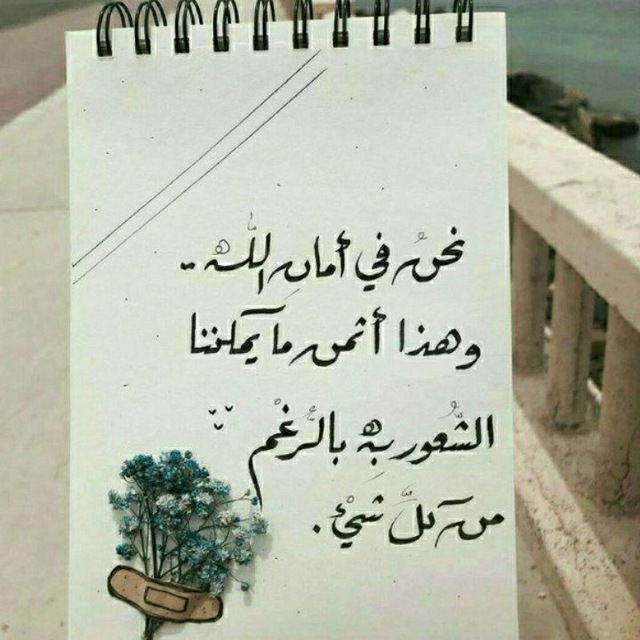 نحنُ في أمانِ اللّٰه ..
وهذا أثمن ما يمكننا
الشُّعور بِه بالرَّغْم
من كلَّ شيْء .